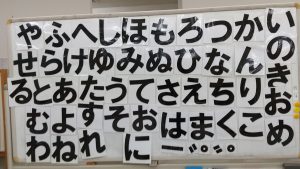 やふへしほもろつかい
せらけゆみぬひなんの
るとあたうてさえちりき
むよすそおはまくこお
わねれにめ